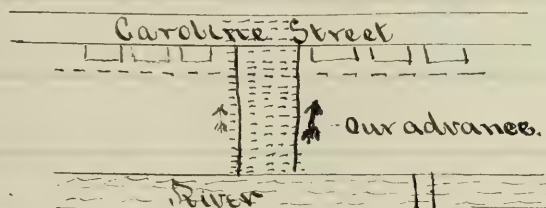 Caroline Street
our advance.
River